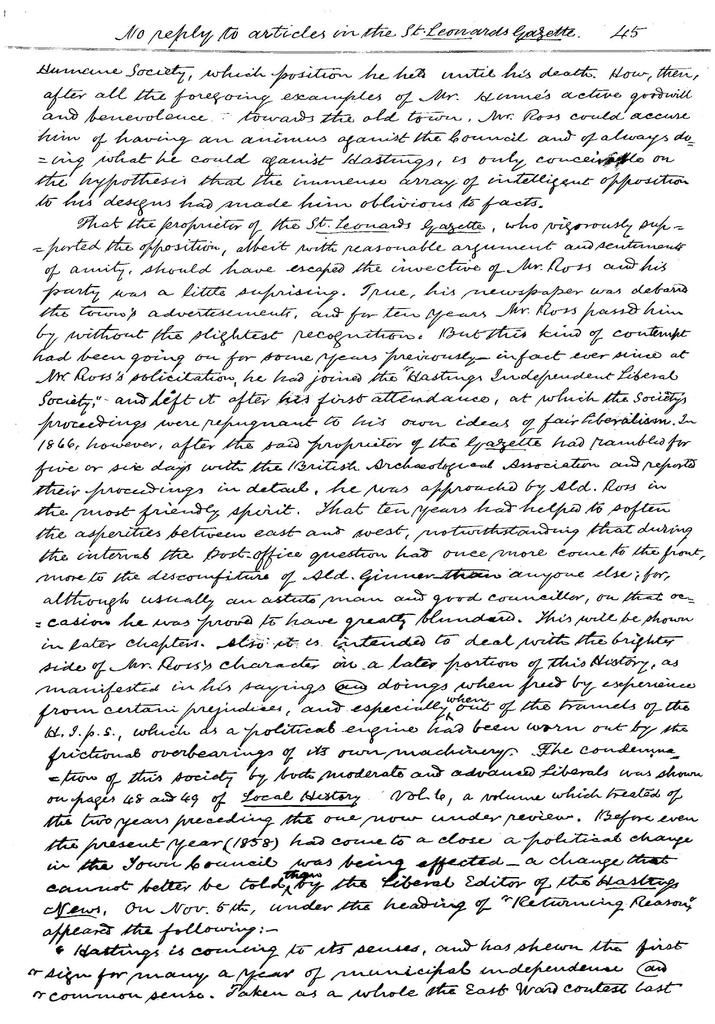 No reply to articles in the St. Leonards Gazette. 45
Humane Society, which position he held until his death. How, then,
after all the foregoing examples of Mr. Hinne's active goodwill
and benevolence towards the old town, Mr. Ross could accuse
him of having an animus against the Council and of always do=
=ing what he could against Hastings, is only conceivable on
the hypothesis that the immense array of intelligent opposition
to his designs had made him oblivious to facts.
That the proprietor of the St. Leonards Gazette, who vigorously sup=
=ported the opposition, albeit with reasonable argument and sentiments
of amity, should have escaped the invective of Mr. Ross and his
party was a little suprising. True, his newspaper was debared
the town's advertesements, and for ten years Mr. Ross passed him
by without the slightest recognition. But this kind of contempt
had been going on for some years previously – in fact ever since at
Mr. Ross's solicitation, he had joined the "Hastings Independent Liberal
Society," and left it after his first attendance, at which the Society's
proceedings were repugnant to his own ideas of fair liberalism. In
1866, however, after the said proprietor of the Gazette had rambled for
five or six days with the British Archaeological Association and reported
their proceedings in detail, he was approached by Ald. Ross in
the most friendly spirit. That ten years had helped to soften
the asperities between east and west, notwithstanding that during
the interval the Post-office question had once more come to the front,
more to the discomfiture of Ald. Ginner than anyone else; for,
although usually an astute man and good councillor, on that oc=
=casion he was proved to have greatly blundered. This will be shown
in later chapters. Also it is intended to deal with the brighter
side of Mr. Ross's character in a later portion of this History, as
manifested in his sayings and doings when freed by experience
from certain prejudices, and especially when out of the tramels of the
H.I.p.S., which as a political engine had been worn out by the
frictional overbearings of its own machinery. The condemna=
=tion of this society by both moderate and advanced Liberals was shown
on pages 48 and 49 of Local History Vol. 6, a volume which treated of
the two years preceding the one now under review. Before even
the present year (1858) had come to a close a political change
in the Town Council was being effected – a change that
cannot better be told than by the Liberal Editor of the Hastings
News. On Nov. 5th, under the heading of "Returning Reason,"
appeared the following:–
" Hastings is coming to its senses, and has shewn the first
" sign for many a year of municipal independence and
" common sense. Taken as a whole the East Ward contest last